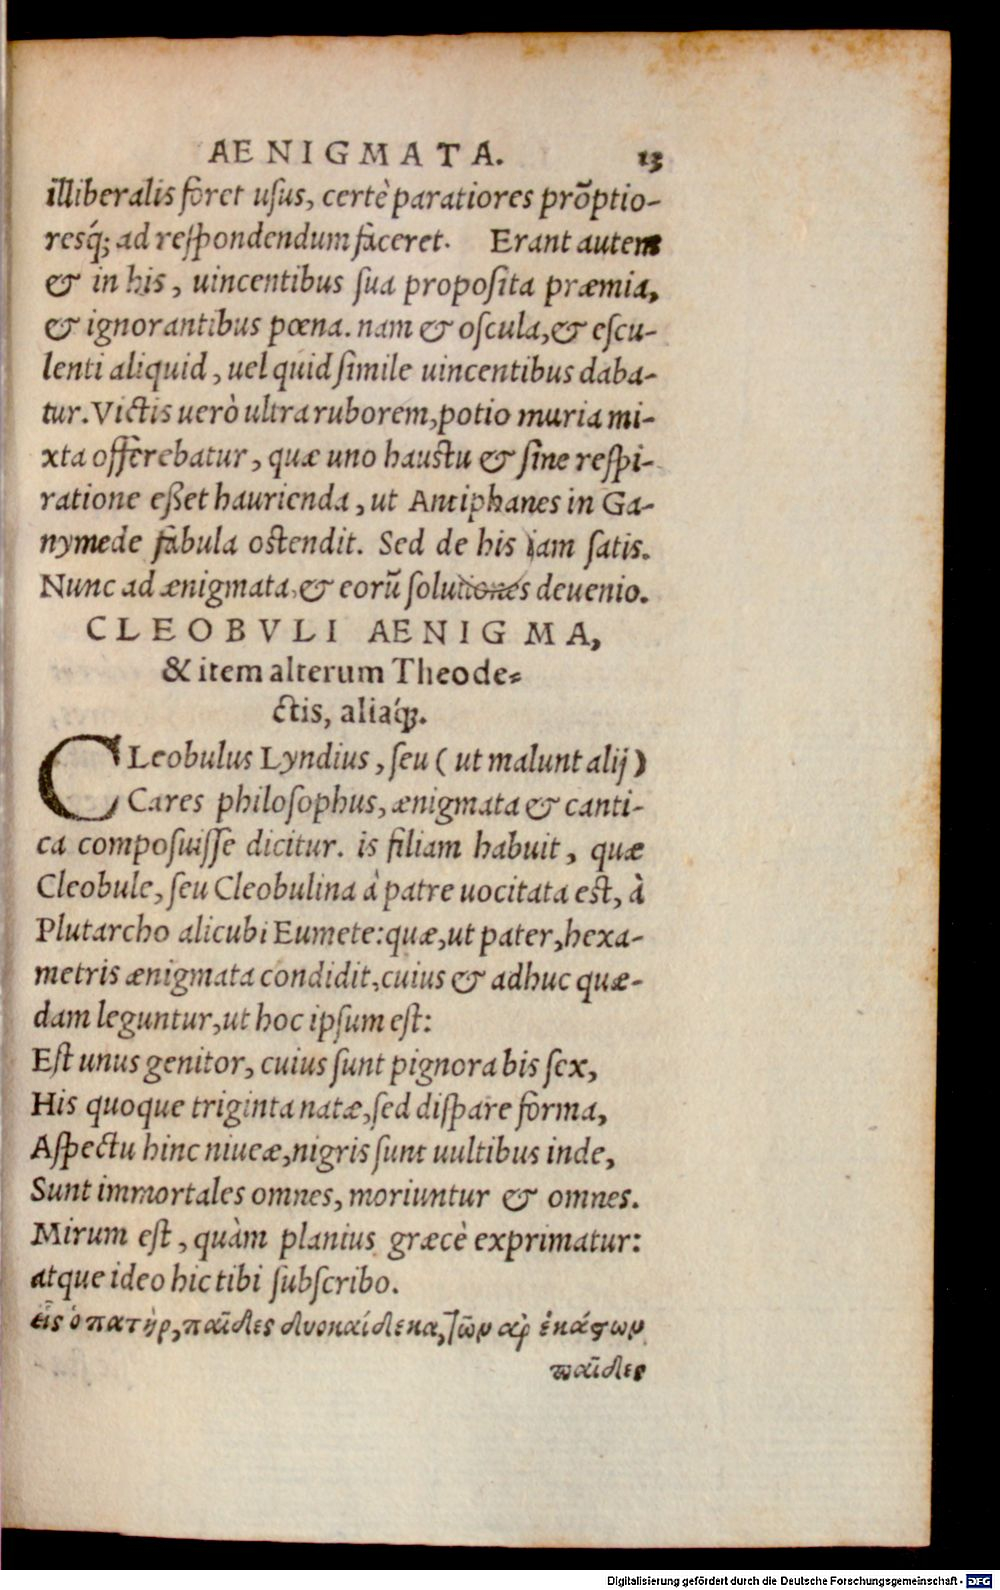 AENIGMATA. 13
illiberalis foret usus, certè paratiores prõptio-
resq́; ad respondendum faceret. Erant autem
& in his, uincentibus sua proposita præmia,
& ignorantibus pœna. nam & oscula, & escu-
lenti aliquid, uel quid simile uincentibus daba-
tur. Victis uerò ultra ruborem, potio muria mi-
xta offerebatur, quæ uno haustu & sine respi-
ratione eßet haurienda, ut Antiphanes in Ga-
nymede fabula ostendit. Sed de his iam satis.
Nunc ad ænigmata, & eorũ solutiones deuenio.
CLEOBVLI AENIGMA,
& item alterum Theode-
ctis, aliaq́;.
CLeobulus Lyndius, seu (ut malunt alij)
Cares philosophus, ænigmata & canti-
ca composuisse dicitur. is filiam habuit, quæ
Cleobule, seu Cleobulina à patre uocitata est, à
Plutarcho alicubi Eumete: quæ, ut pater, hexa-
metris ænigmata condidit, cuius & adhuc quæ-
dam leguntur, ut hoc ipsum est:
Est unus genitor, cuius sunt pignora bis sex,
His quoque triginta natæ, sed dispare forma,
Aspectu hinc niueæ, nigris sunt uultibus inde,
Sunt immortales omnes, moriuntur & omnes.
Mirum est, quàm planius græcè exprimatur:
atque ideo hic tibi subscribo.
εἷς ὁ πατὴρ, παῖδες δυοκαίδεκα, τῶν γὰρ ἑκάστων
παῖδες
Digitalisierung gefördert durch die Deutsche Forschungsgemeinschaft - DFG